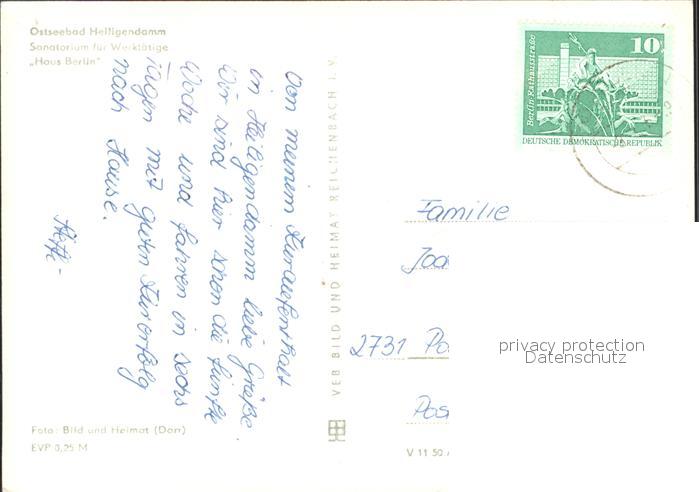 Ostseebad Heiligendamm
Sanatorium für Werktätige
„Haus Berlin"
Von meinem Kuraufenthalt
in Heiligendamm liebe Grüße.
Wir sind hier schon die fünfte
Woche und fahren in sechs
Tagen mit guten Kurerfolg
nach Hause.
Foto: Bild und Heimat (Dorr)
EVP 0,25 M
VEB BILD UND HEIMAT REICHENBACH I. V.
10
Berlin, Rathausstraße
DEUTSCHE DEMOKRATISCHE REPUBLIK
Familie
Joa
2731 Po
Pos
V 11 50
privacy protection
Datenschutz